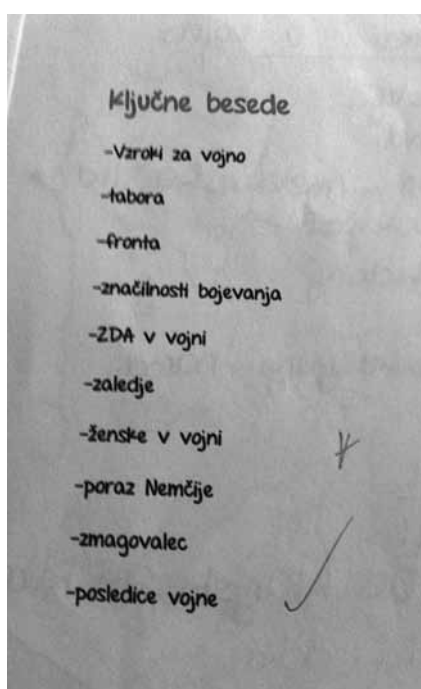 Ključne besede
-Vzroki za vojno
-tabora
-fronta
-značilnosti bojevanja
-ZDA v vojni
-zaledje
-ženske v vojni
-poraz Nemčije
-zmagovalec
-posledice vojne